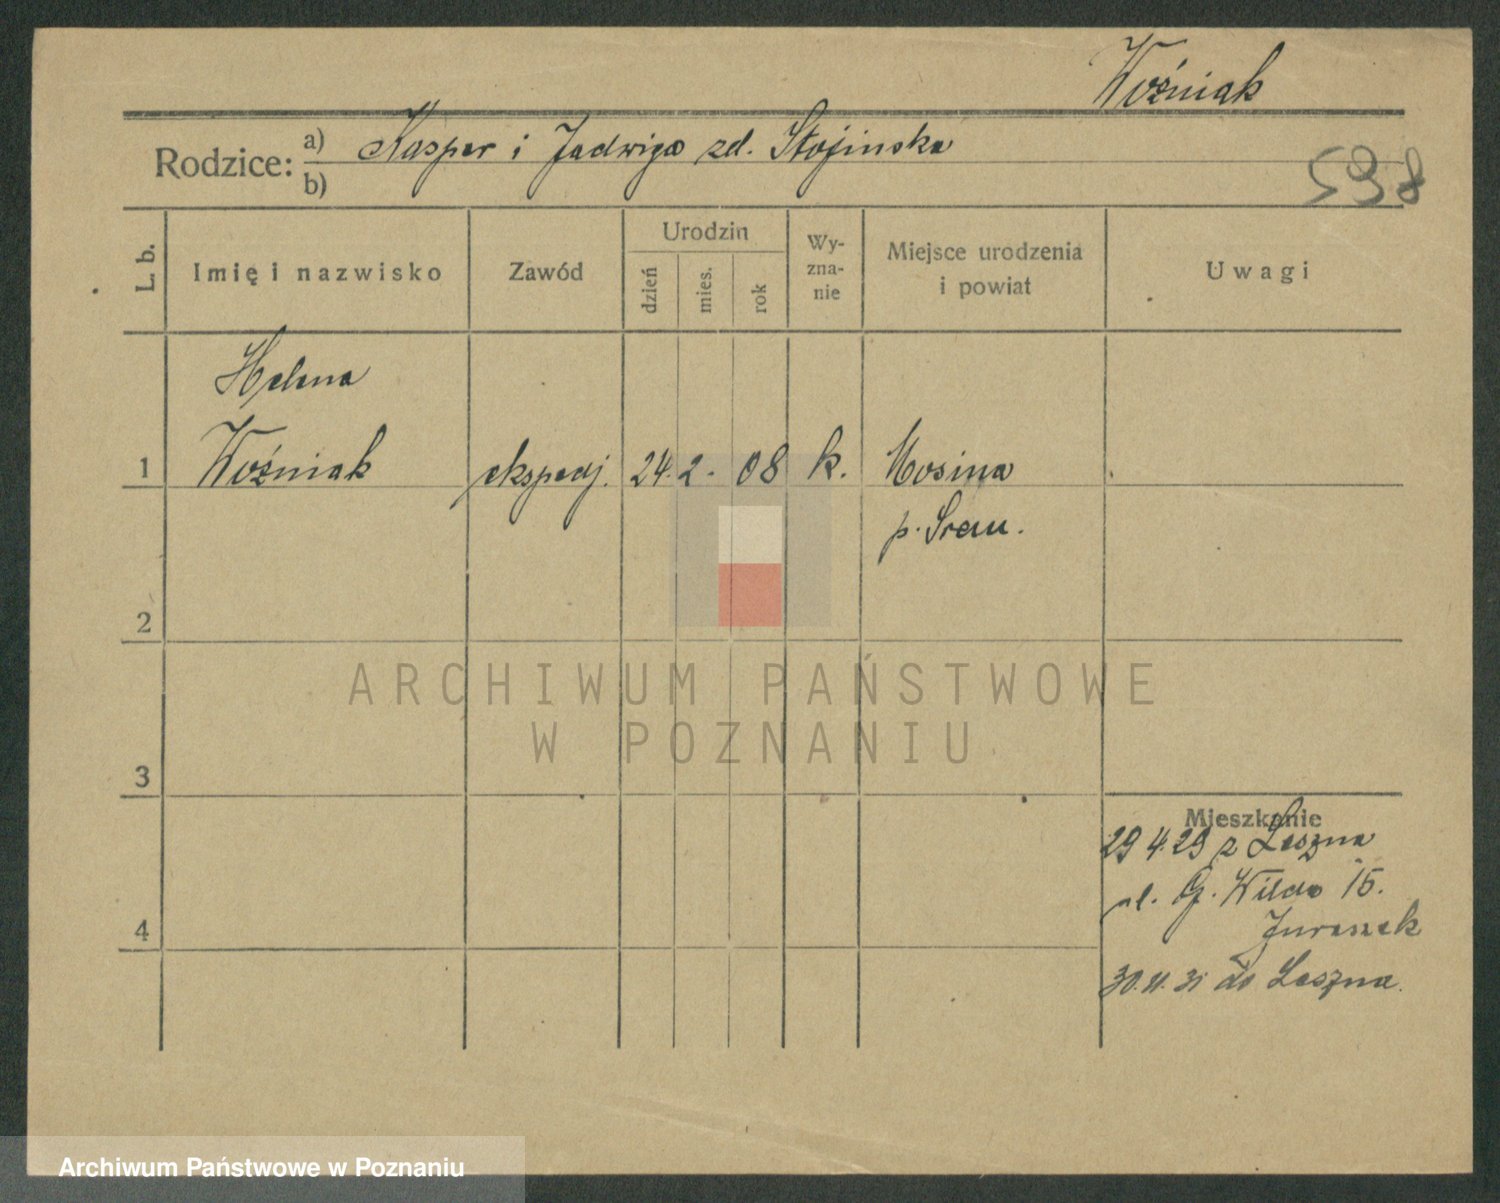 Woźniak
Rodzice: a) Kasper i Jadwiga zd. Stojinska
b)
598
L. b.
Imię i nazwisko
Zawód
Urodzin
dzień
mies.
rok
Wy-
zna-
nie
Miejsce urodzenia
i powiat
Uwagi
Helena
1 Woźniak ekspedj. 24. 2. 08 k. Mosina
p. Srem.
2
ARCHIWUM PAŃSTWOWE
W POZNANIU
3
Mieszkanie
29 4. 29 z Leszna
ul. G. Wilda 15.
4
30. 11. 31 do Leszna.
Archiwum Państwowe w Poznaniu